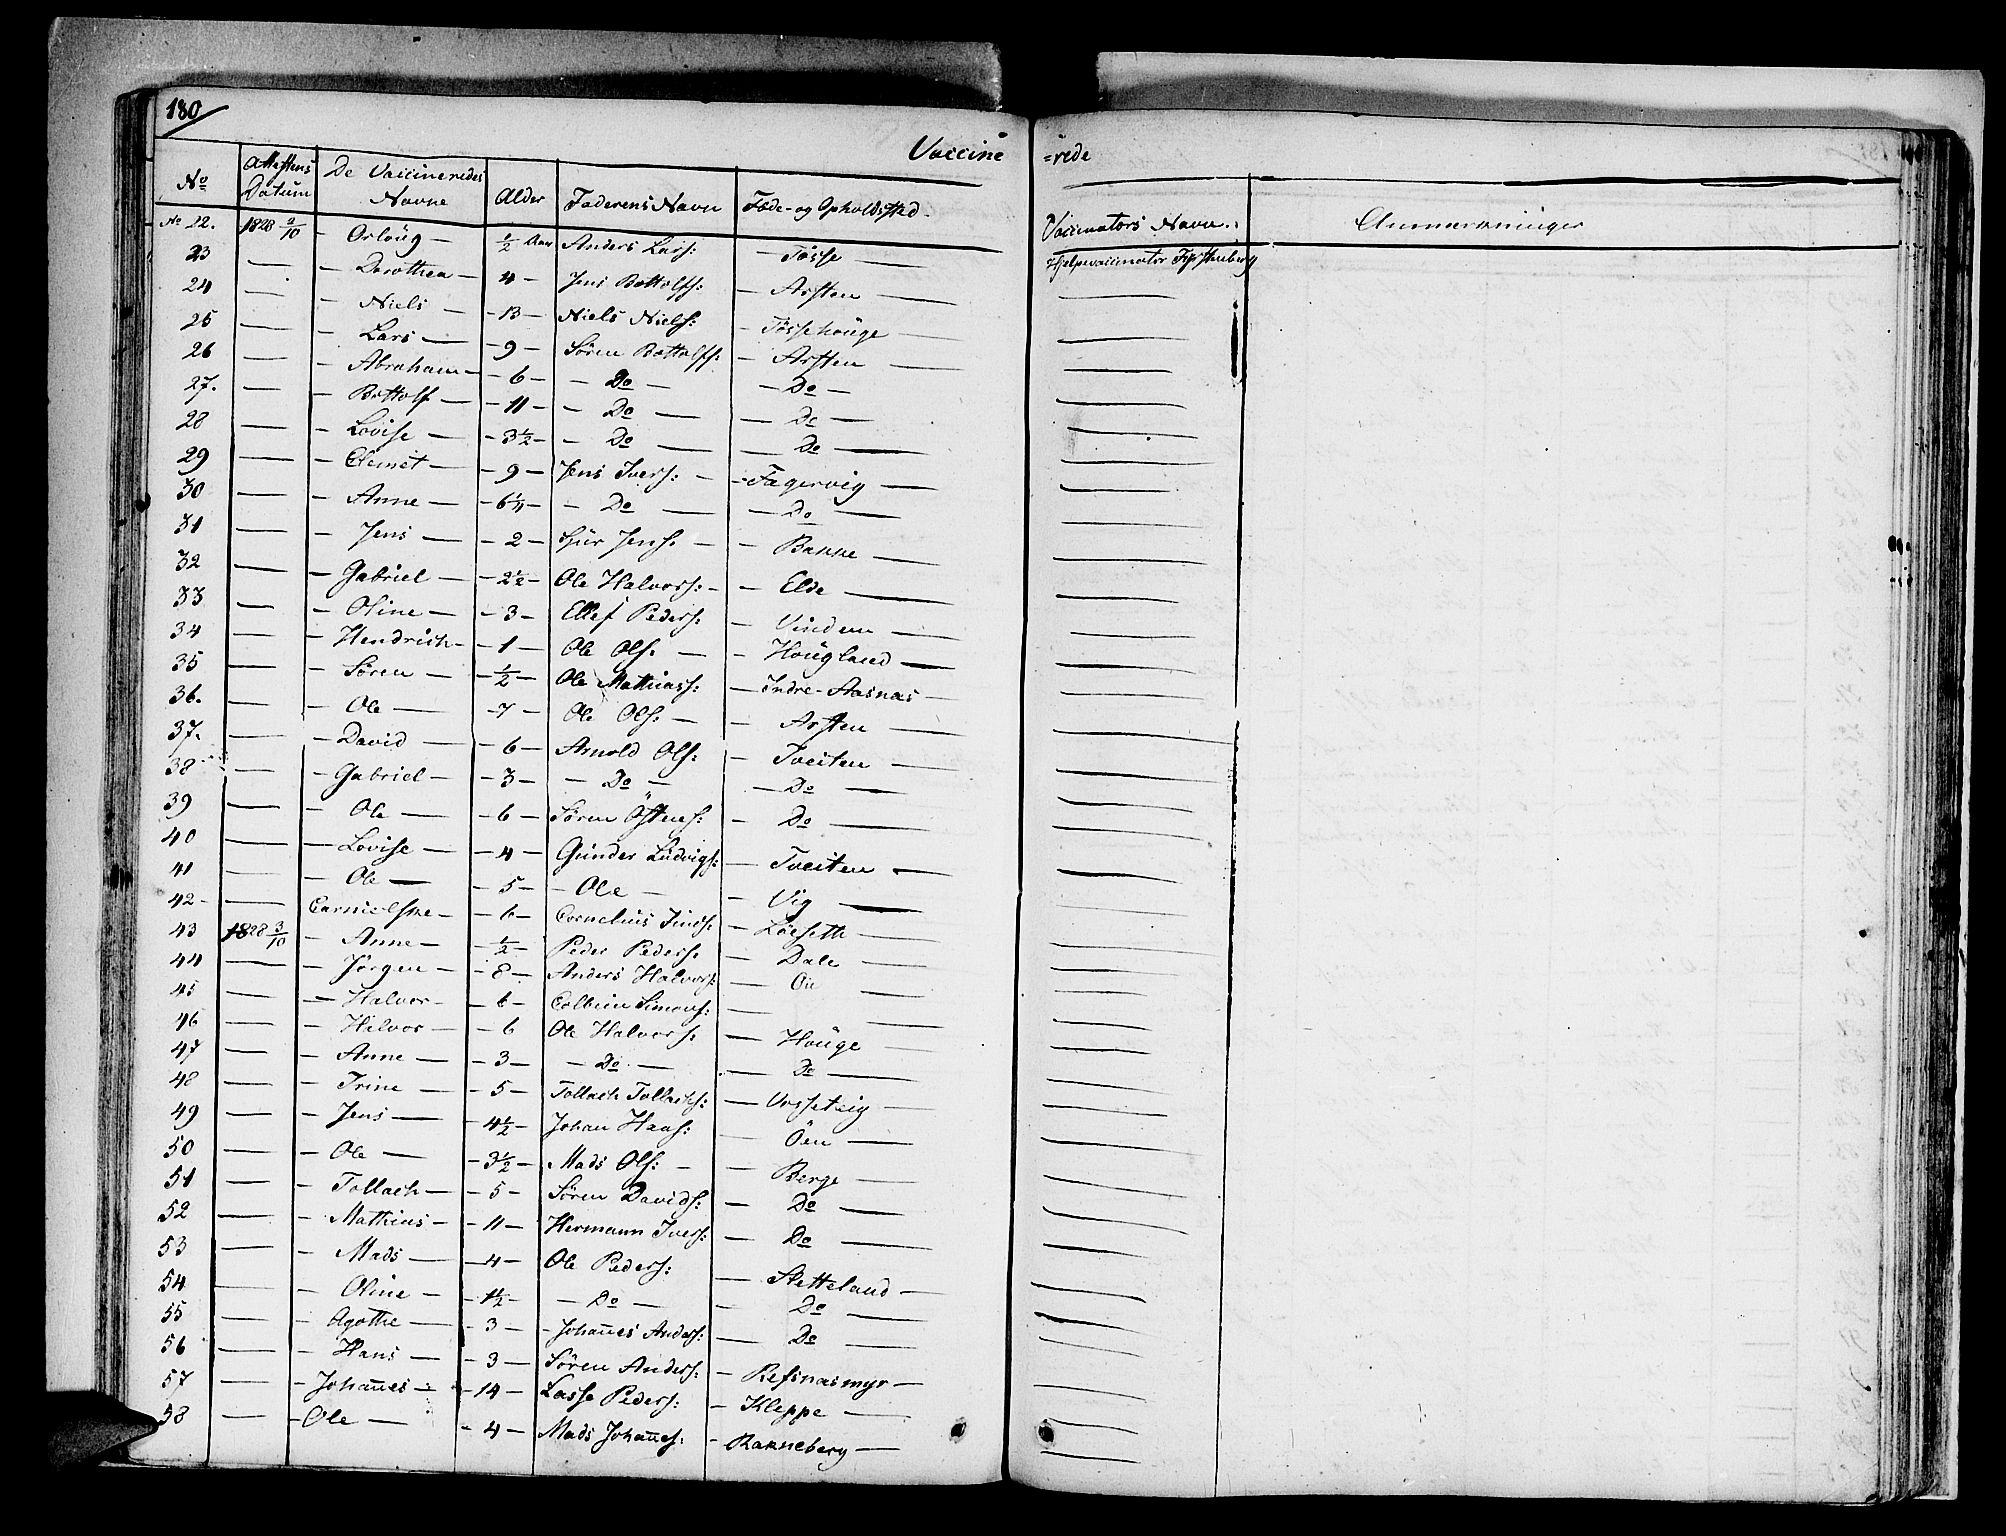 180
Vaccine =rede
No Attestens Datum De Vaccineredes Navne Alder Faderens Navn Føde- og Opholdsted. Vaccinators Navn. Anmærkninger
No 22. 1828 2/10 - Orloug - 1/2 Aar Anders Lars: - Tøsse — Hjelpevaccinator
23 — - Dorothea - 4 - Jens Bottolfs: - Arsten —
24 — - Niels - 13 - Niels Niels: - Tøssehouge —
25 — - Lars - 9 - Søren Bottolfs: - Arsten —
26 — - Abraham - 6 - Do - Do —
27. — - Bottolf - 11 - Do - Do —
28 — - Lovise - 3 1/2 - Do - Do —
29 — - Clemet - 9 - Jens Ivers: - Fagervig —
30 — - Anne - 6 - Do - Do —
31 — - Jens - 2 - Sjur Jens: - Bakke —
32 — - Gabriel - 2 1/2 - Ole Halvors: - Elde —
33 — - Oline - 3 - Ellef Peders: - Vindem —
34 — - Hendrich - 1 - Ole Ols: - Hougland —
35 — - Søren - 1/2 - Ole Mathias: - Indre-Aasnas —
36. — - Ole - 7 - Ole Ols: - Arsten —
37. — - David - 6 - Arnold Ols: - Tveiten —
38 — - Gabriel - 3 - Do - Do —
39 — - Ole - 6 - Søren Östens: - Do —
40 — - Lovise - 4 - Gunder Ludvigs: - Tveiten —
41 — - Ole - 5 - Ole - Vig —
42 — Cornielske - 6 - Cornelius - Løeseth —
43 1828 3/10 - Anne - 1/2 - Peder Peders: - Dale —
44 — - Jørgen - 8 - Anders Halvors: - Öu —
45 — - Halvor - 6 - Colbein Simons: —
46 — - Halvor - 6 Ole Halvors: - Houge —
47 — - Anne - 3 - Do - Do —
48 — - Trine - 5 - Tollach Tollachs: - Vasseteig —
49 — - Jens - 4 1/2 - Johan Hans: - Öen —
50 — - Ole - 3 1/2 - Mads Ols: - Berge —
51 — - Tollach - 5 - Søren Davids: - Do —
52 — - Mathias - 11 - Hermann Ivers: - Do —
53 — - Mads - 4 - Ole Peders: - Sletteland —
54 — - Oline - 1 1/2 - Do - Do —
55 — - Agothe - 3 - Johañes Anders: - Do —
56 — - Hans - 3 - Søren Anders: - Refsnasmyr —
57 — - Johañes - 14 - Lasse Peders: - Kleppe —
58 — - Ole - 4 - Mads Johañes: - Ranneberg —